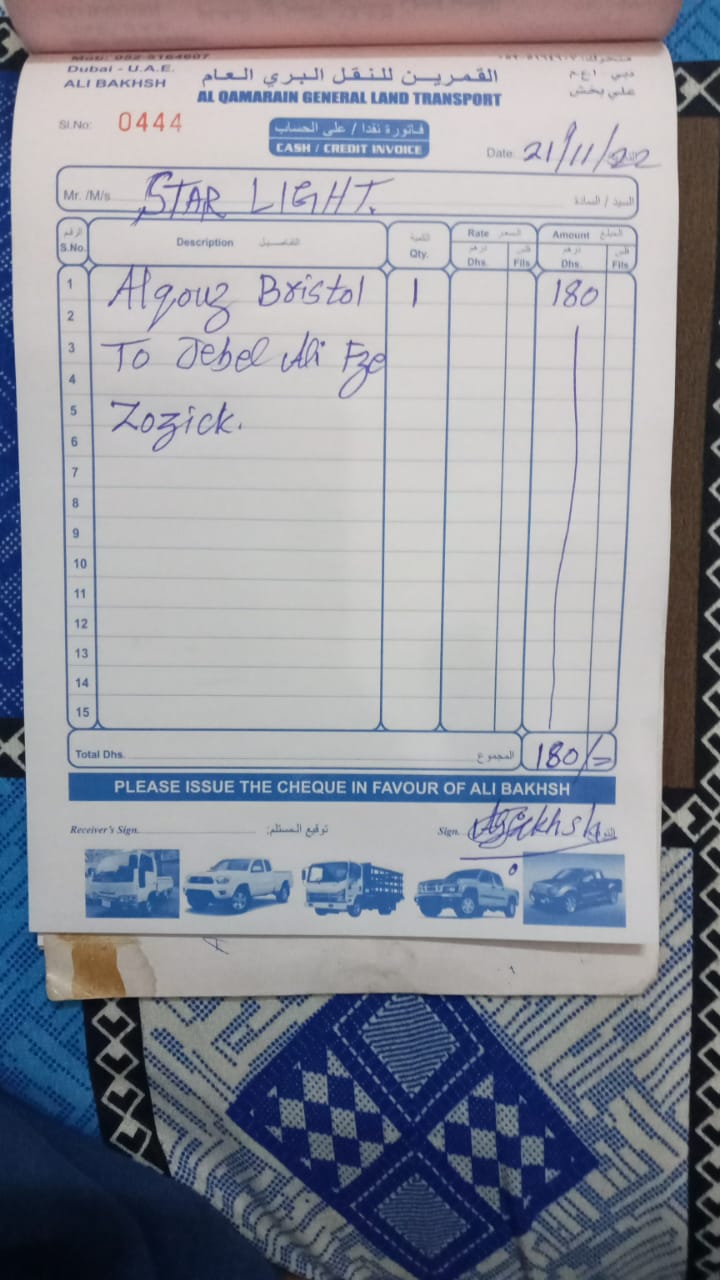 Dubai - U.A.E.
دبي ا.ع.م
ALI BAKHSH
علي بخش
القمرين للنقل البري العام
AL QAMARAIN GENERAL LAND TRANSPORT
Sl.No: 0444
فاتورة نقدا / على الحساب
CASH / CREDIT INVOICE
Date: 21/11/22
Mr. /M/s. STAR LIGHT. السيد / السادة
الرقم S.No.
Description التفاصيل
الكمية Qty.
Rate السعر
درهم Dhs. فلس Fils
Amount المبلغ
درهم Dhs. فلس Fils
1 Alqouz Bristol 1 180
2
3 To Jebel Ali Fze
4
5 Zozick.
6
7
8
9
10
11
12
13
14
15
Total Dhs. المجموع 180/=
PLEASE ISSUE THE CHEQUE IN FAVOUR OF ALI BAKHSH
Receiver's Sign. توقيع المستلم:
Sign.